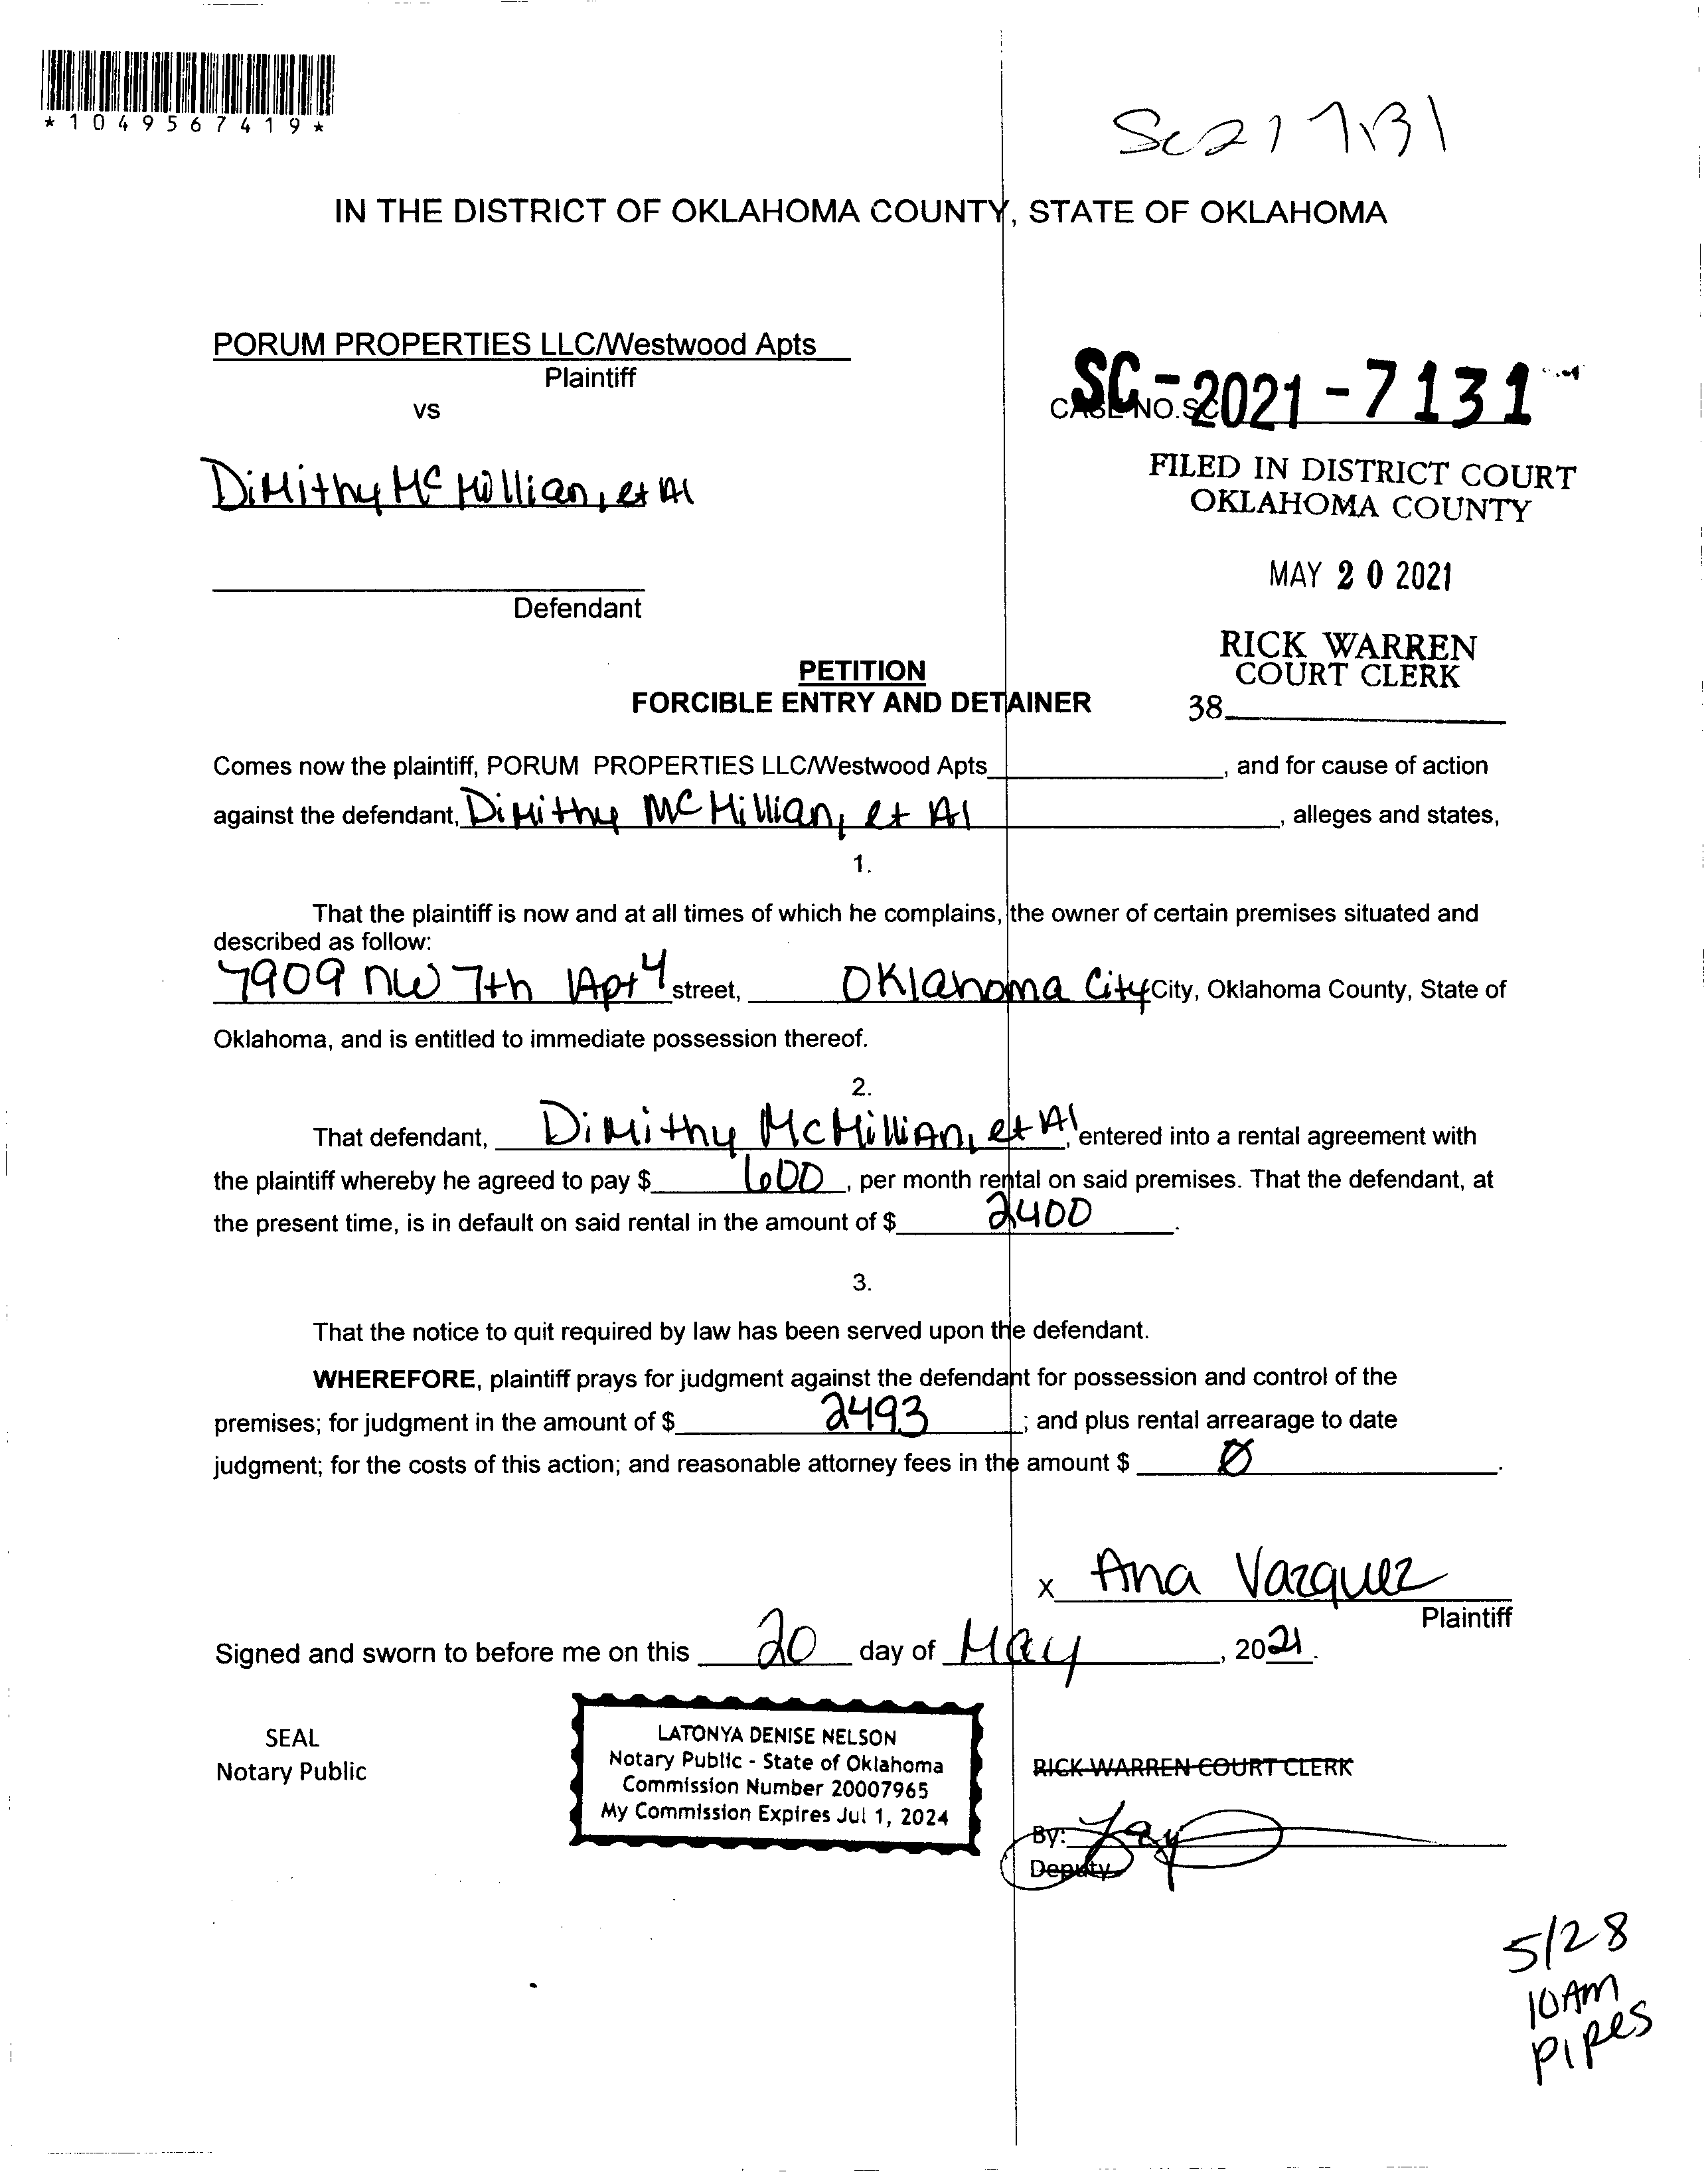 *1049567419*
SC21 7131
IN THE DISTRICT OF OKLAHOMA COUNTY, STATE OF OKLAHOMA
PORUM PROPERTIES LLC/Westwood Apts
Plaintiff
vs
CASE NO. SC
SC-2021-7131
Dimithy McMillian, et Al
FILED IN DISTRICT COURT
OKLAHOMA COUNTY
MAY 20 2021
Defendant
RICK WARREN
COURT CLERK
38
PETITION
FORCIBLE ENTRY AND DETAINER
Comes now the plaintiff, PORUM PROPERTIES LLC/Westwood Apts, and for cause of action
against the defendant, Dimithy McMillian, et Al, alleges and states,
1.
That the plaintiff is now and at all times of which he complains, the owner of certain premises situated and
described as follow:
7909 NW 7th Apt 4 street, Oklahoma City City, Oklahoma County, State of
Oklahoma, and is entitled to immediate possession thereof.
2.
That defendant, Dimithy McMillian, et Al, entered into a rental agreement with
the plaintiff whereby he agreed to pay $ 600, per month rental on said premises. That the defendant, at
the present time, is in default on said rental in the amount of $ 2400.
3.
That the notice to quit required by law has been served upon the defendant.
WHEREFORE, plaintiff prays for judgment against the defendant for possession and control of the
premises; for judgment in the amount of $ 2493; and plus rental arrearage to date
judgment; for the costs of this action; and reasonable attorney fees in the amount $ 0.
x Ana Vazquez
Plaintiff
Signed and sworn to before me on this 20 day of May, 2021.
SEAL
Notary Public
LATONYA DENISE NELSON
Notary Public - State of Oklahoma
Commission Number 20007965
My Commission Expires Jul 1, 2024
RICK WARREN COURT CLERK
By:
Deputy
5/28
10AM
Pipes